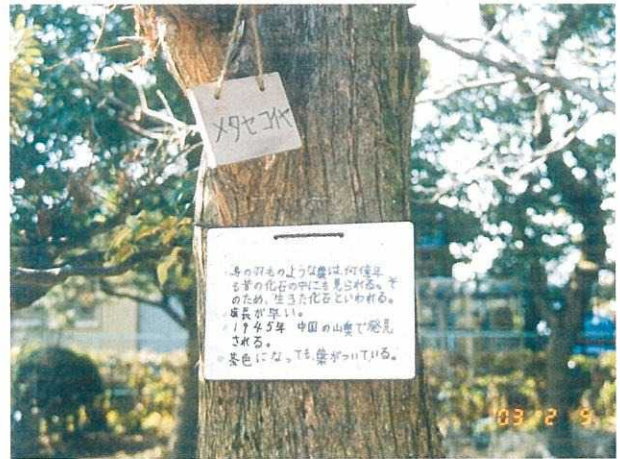 メタセコイヤ
鳥の羽毛のような葉は、何億年
も昔の化石の中にも見られる。そ
のため、生きた化石といわれる。
成長が早い。
1945年 中国の山奥で発見
される。
茶色になっても、葉がついている。
03 2 9